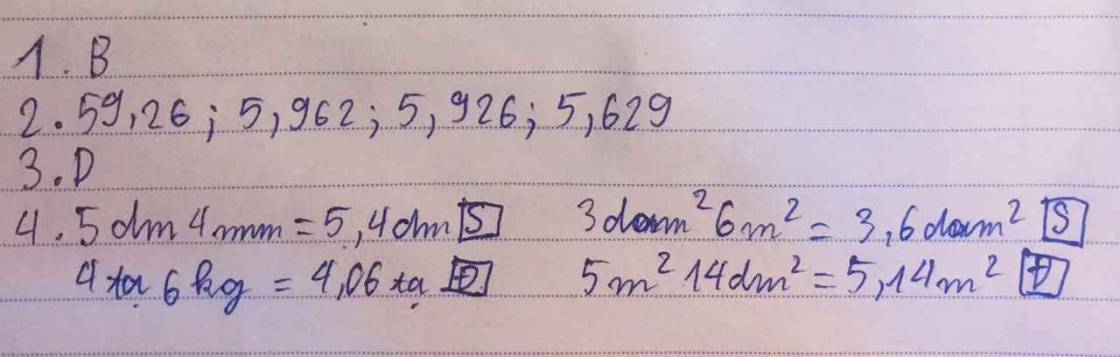 1. B
2. 59,26; 5,962; 5,926; 5,629
3. D
4. 5 dm 4 mm = 5,4 dm S 3 dam² 6 m² = 3,6 dam² S
4 tạ 6 kg = 4,06 tạ Đ 5 m² 14 dm² = 5,14 m² Đ